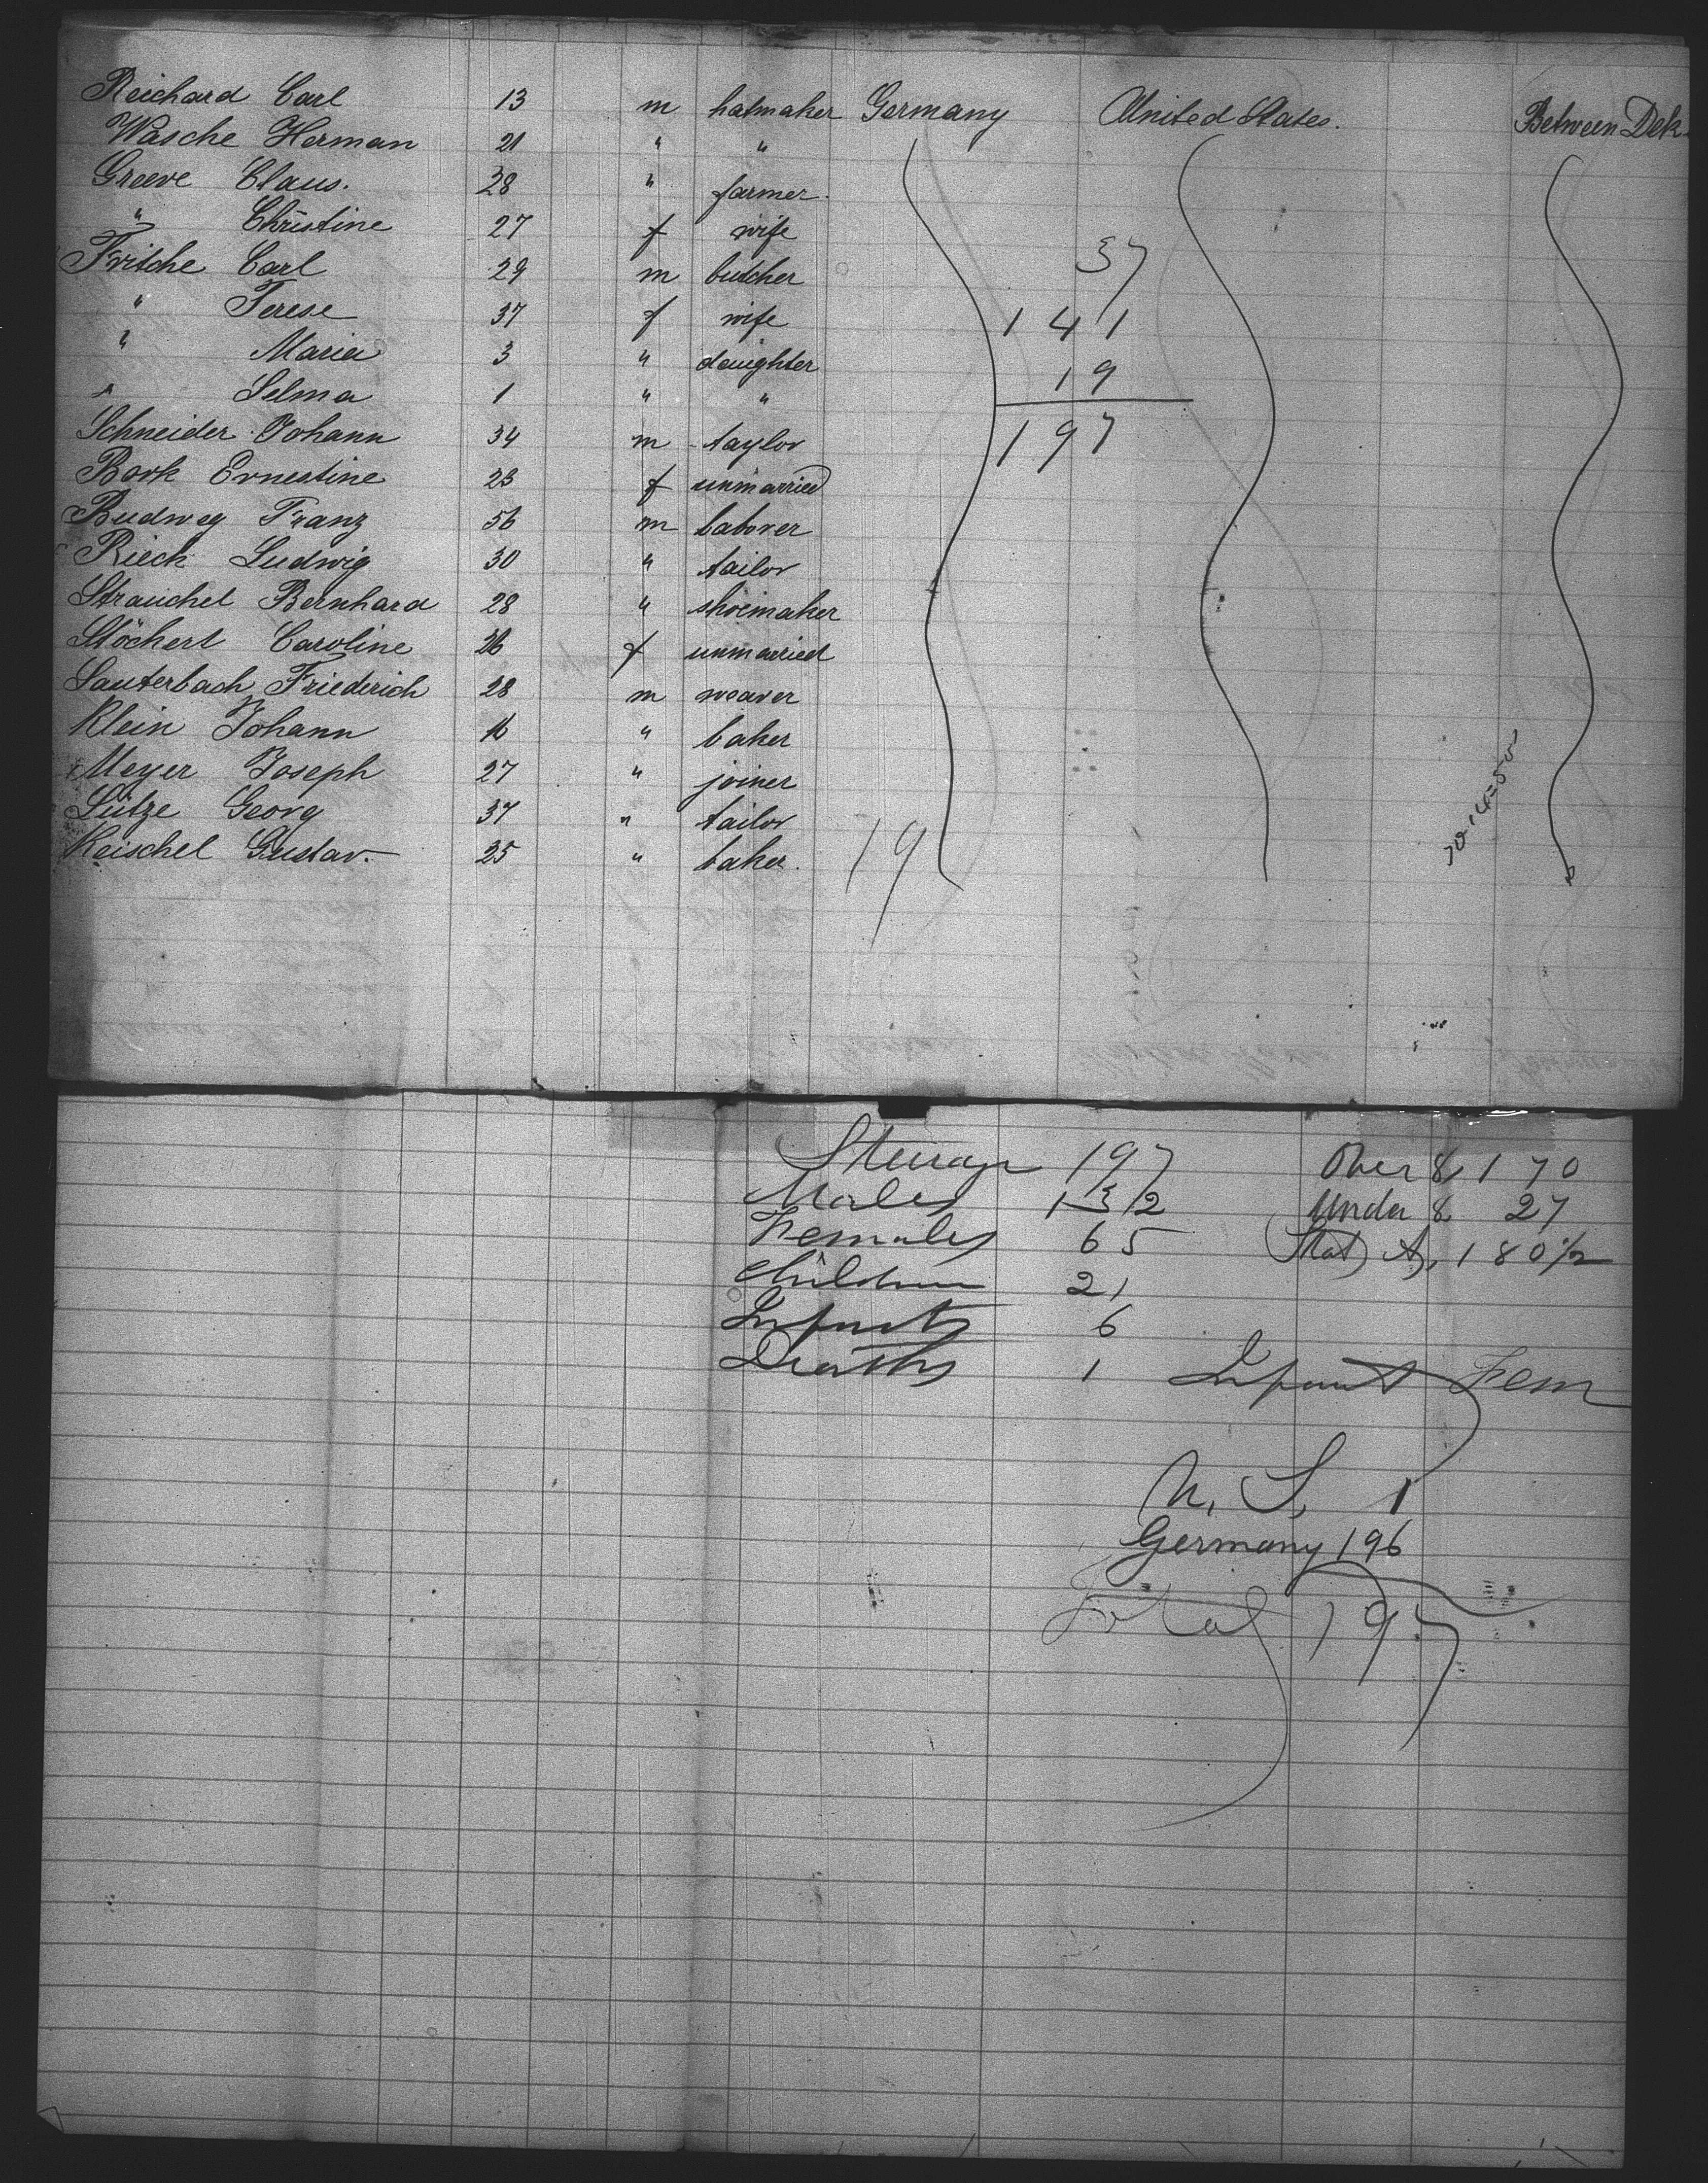 Reichard Carl 13 m hatmaker Germany United States. Between Dek
Wasche Herman 21 " "
Greeve Claus. 28 " farmer.
" Christine 27 f wife
Fritche Carl 29 m butcher
" Terese 37 f wife
" Maria 3 " daughter
" Selma 1 " "
Schneider Johann 34 m taylor
Bork Ernestine 23 f unmarried
Budweg Franz 56 m laborer
Rieck Ludwig 30 " tailor
Strauchel Bernhard 28 " shoemaker
Stöckert Caroline 26 f unmarried
Lauterbach Friederich 28 m weaver
Klein Johann 16 " baker
Meyer Joseph 27 " joiner
Lütze Georg 37 " tailor
Keischel Gustav. 25 " baker.
37
141
19
197
19
Steerage 197 Over 8, 170
Males 132 Under 8 27
Females 65 Stat A, 180 1/2
Children 21
Infants 6
Deaths 1 Infant Fem
U. S. 1
Germany 196
Total 197